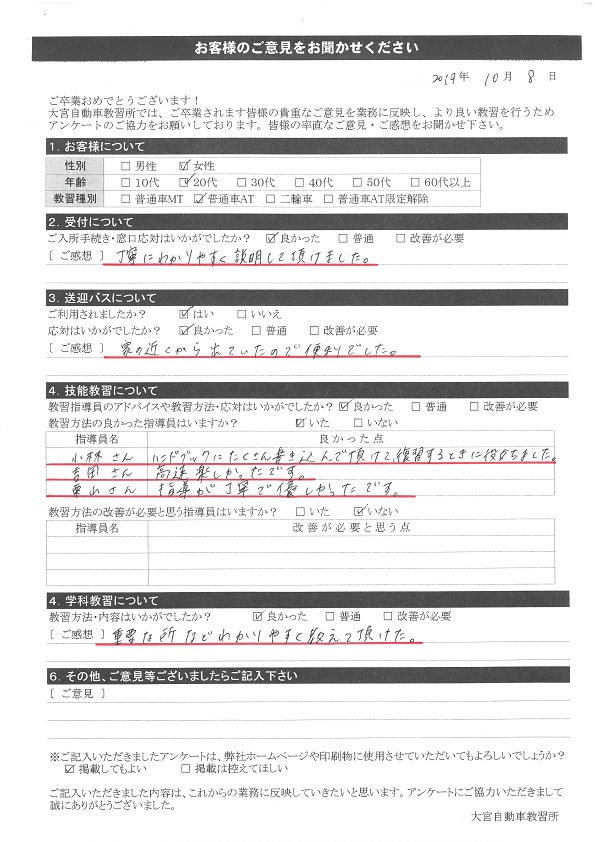 お客様のご意見をお聞かせください
2019年 10月 8日
ご卒業おめでとうございます！
大宮自動車教習所では、ご卒業されます皆様の貴重なご意見を業務に反映し、より良い教習を行うため
アンケートのご協力をお願いしております。皆様の率直なご意見・ご感想をお聞かせ下さい。
1. お客様について
性別 □ 男性 ☑ 女性
年齢 □ 10代 ☑ 20代 □ 30代 □ 40代 □ 50代 □ 60代以上
教習種別 □ 普通車MT ☑ 普通車AT □ 二輪車 □ 普通車AT限定解除
2. 受付について
ご入所手続き・窓口応対はいかがでしたか？ ☑ 良かった □ 普通 □ 改善が必要
[ ご感想 ] 丁寧にわかりやすく説明して頂けました。
3. 送迎バスについて
ご利用されましたか？ ☑ はい □ いいえ
応対はいかがでしたか？ ☑ 良かった □ 普通 □ 改善が必要
[ ご感想 ] 家の近くから出ていたので便利でした。
4. 技能教習について
教習指導員のアドバイスや教習方法・応対はいかがでしたか？ ☑ 良かった □ 普通 □ 改善が必要
教習方法の良かった指導員はいますか？ ☑ いた □ いない
指導員名 良かった点
小林さん ハンドブックにたくさん書き込んで頂けて、復習するときに役立ちました。
吉田さん 高速楽しかったです。
栗山さん 指導が丁寧で優しかったです。
教習方法の改善が必要と思う指導員はいますか？ □ いた ☑ いない
指導員名 改善が必要と思う点
4. 学科教習について
教習方法・内容はいかがでしたか？ ☑ 良かった □ 普通 □ 改善が必要
[ ご感想 ] 重要な所などわかりやすく教えて頂けた。
6. その他、ご意見等ございましたらご記入下さい
[ ご意見 ]
※ご記入いただきましたアンケートは、弊社ホームページや印刷物に使用させていただいてもよろしいでしょうか？
☑ 掲載してもよい □ 掲載は控えてほしい
ご記入いただきました内容は、これからの業務に反映していきたいと思います。アンケートにご協力いただきまして
誠にありがとうございました。
大宮自動車教習所